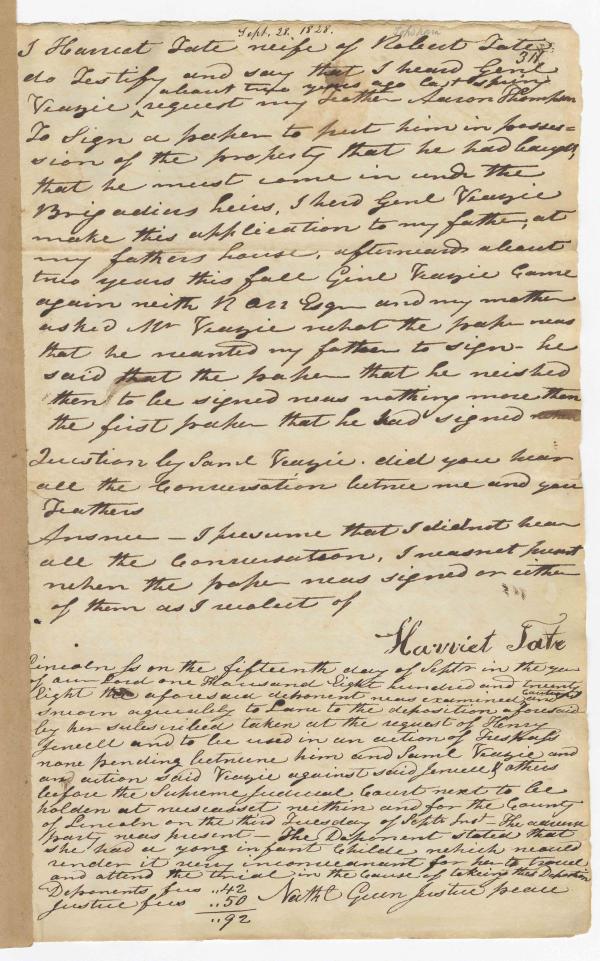 Sept. 28. 1828.
I Harriot Tate wife of Robert Tate
311
do Testify and say that I heard Genl
about two years ago last spring
Veazie ^ request my Feather Aaron Thompson
To Sign a paper to put him in posses=
sion of the property that he had baught
that he must come in undr the
Brigadiers heirs, I herd Genl Veazie
make this application to my father, at
my fathers house, afterwards about
two years this fall Genl Veazie Came
again with R Orr Esqr and my mother
asked Mr Veazie what the paper was
that he wanted my father to sign - he
said that the paper that he wished
then to be signed was nothing more then
the first paper that he had signed
Question by Saml Veazie. did you hear
all the Conversation betwe me and your
Feathers
Answer - I presume that I did not hear
all the Conversation, I was not presant
when the paper was signed or either
of them as I recolect of
Harriet Tate
Lincoln Ss on the fifteenth day of Septr in the year
of our Lord one Thousand Eight hundred and twenty
Eight the aforesaid deponent was examined and Cautioned
Sworn agreeably to Law to the deposition aforesaid
by her subscribed taken at the request of Henry
Jewell and to be used in an action of Trespass
now pending betwune him and Saml Veazie and
an action said Veazie against said Jewell & others
before the Supreme Judicial Court next to be
holden at wiscasset within and for the County
of Lincoln on the third Tuesday of Septr Inst. The adverse
party was present - The Deponent stated that
she had a yong infant Childe which would
render it very inconveanant for her to travel
and attend the thrial in the Cause of taking this Deposition
Deponents fees ,, 42
Justice fees ,, 50 Nathl Green Justice peace
,, 92